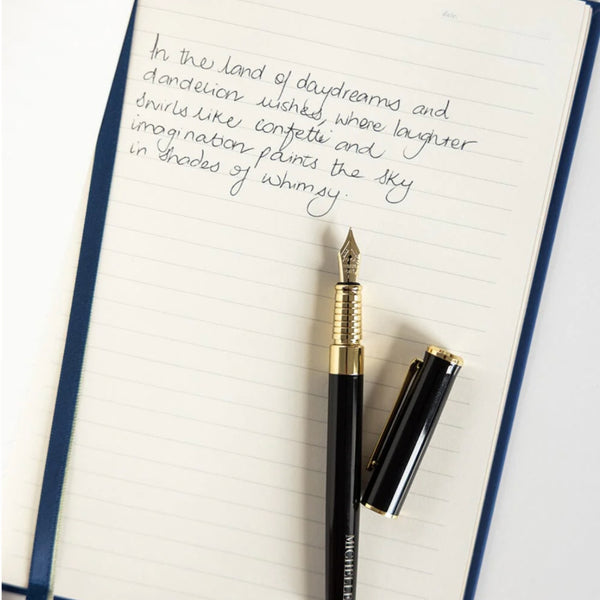 date:
In the land of daydreams and
dandelion wishes, where laughter
swirls like confetti and
imagination paints the sky
in shades of whimsy.
MICHELLE